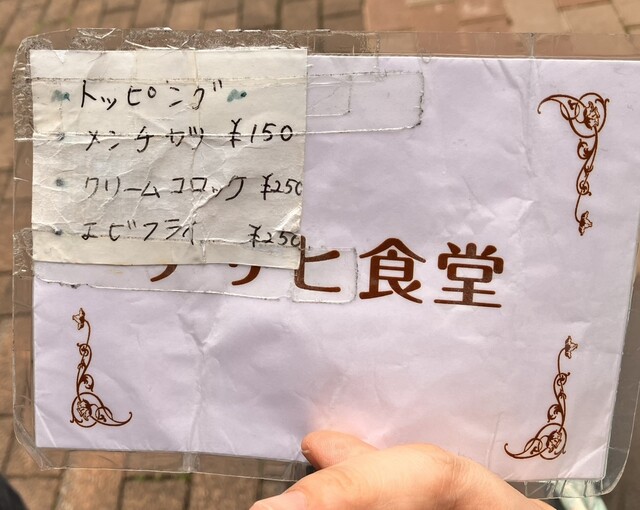 トッピング
・メンチカツ ¥150
・クリームコロッケ ¥250
・エビフライ ¥250
アサヒ食堂